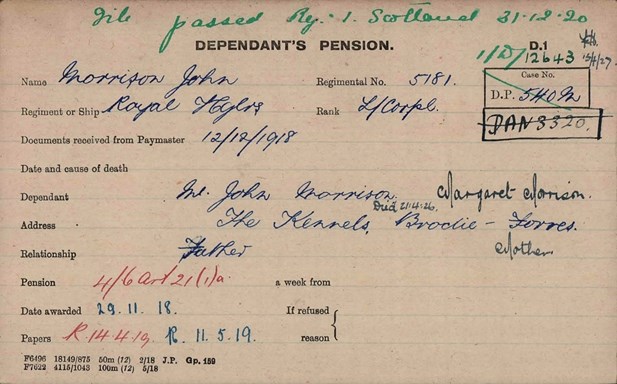 File passed Reg. 1. Scotland 31-12-20
DEPENDANT'S PENSION.
D.1
1/D/12643
15/4/27.
Name Morrison John
Regimental No. 5181.
Case No.
D.P. 540 M
DAN 3320.
Regiment or Ship Royal Hghrs
Rank L/Corpl.
Documents received from Paymaster 12/12/1918
Date and cause of death
Dependant Mr. John Morrison. Margaret Morrison.
Died 21.4.26.
Address The Kennels, Brodie - Forres.
Relationship Father Mother
Pension 4/6 Art 21(1)a a week from
Date awarded 29.11.18. If refused
Papers R 14.4.19. R. 11.5.19. reason
F6496 18149/875 50m (12) 2/18 J.P. Gp. 159
F7622 4115/1043 100m (12) 5/18